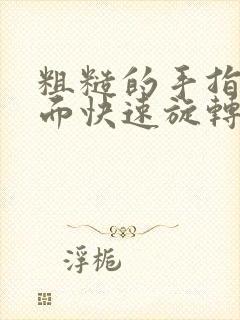 粗糙的手指
而快速旋轉
浮梔